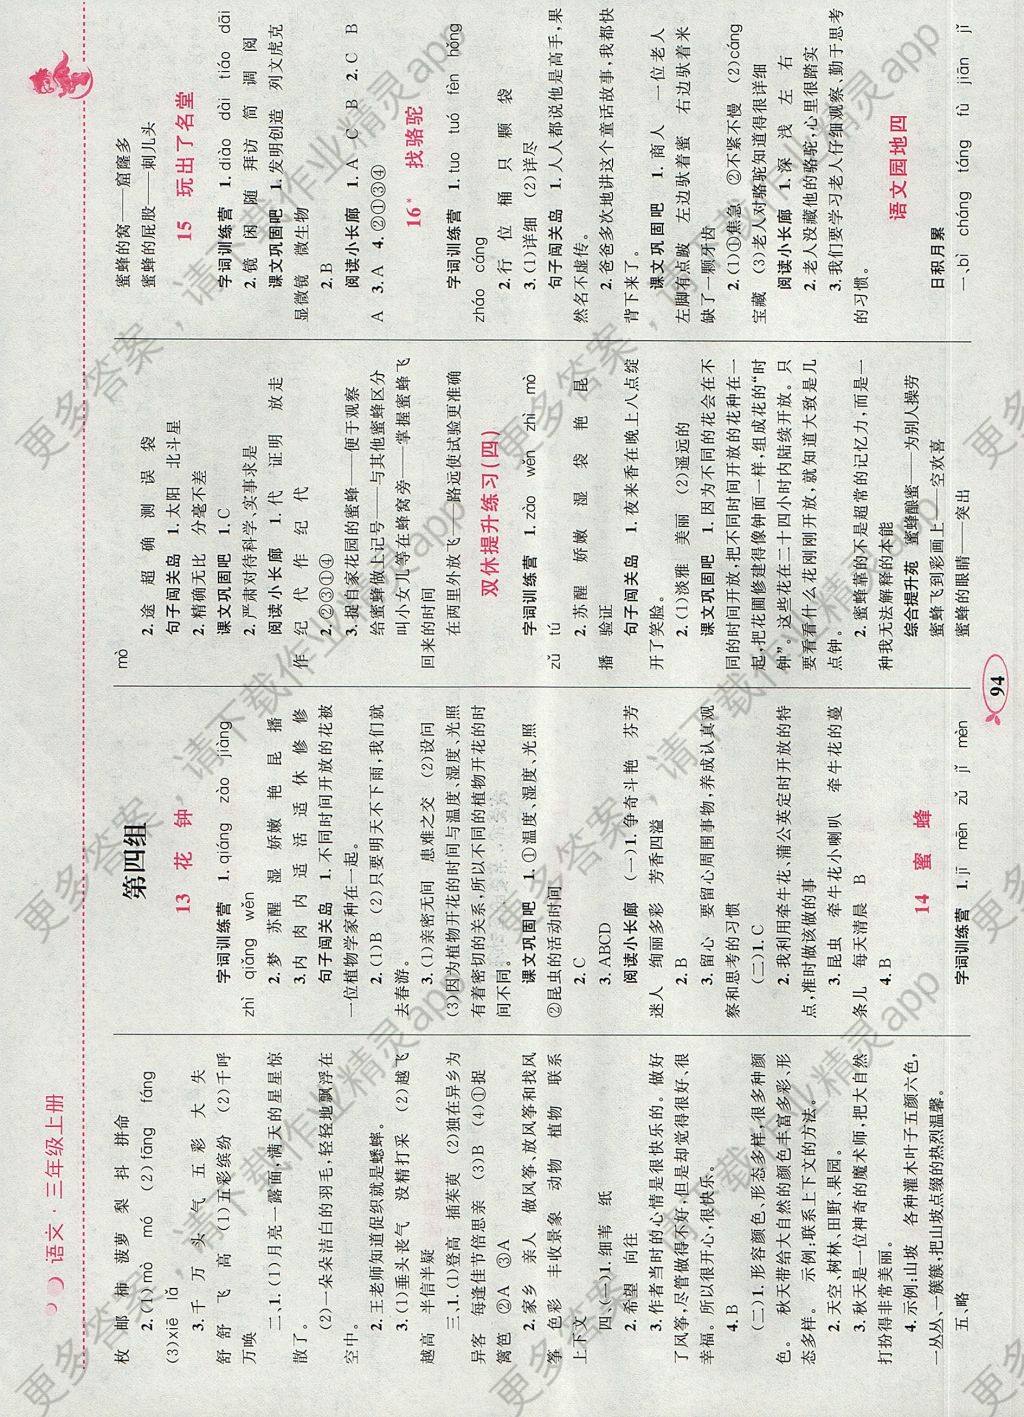 语文·三年级上册
枚 邮 柿 菠萝 梨 抖 拼命
2.(1)mò mó (2)fāng fáng
(3)xiē lā
3.千 万 头 气 五 彩 大 失
舒 舒 飞 高 (1)五彩缤纷 (2)千呼
万唤
二、1.(1)月亮一露面,满天的星星惊
散了。
(2)一朵朵洁白的羽毛,轻轻地飘浮在
空中。
2.王老师知道促织就是蟋蟀。
3.(1)垂头丧气 没精打采 (2)越飞
越高 半信半疑
三、1.(1)登高 插茱萸 (2)独在异乡为
异客 每逢佳节倍思亲 (3)B (4)①捉
篱笆 ②A ③A
2.家乡 亲人 做风筝、放风筝和找风
筝 色彩 丰收景象 动物 植物 联系
上下文
四、(一)1.细苇 纸
2.希望 向往
3.作者当时的心情是很快乐的。做好
了风筝,尽管做得不好,但是却觉得很好、很
幸福。所以很开心,很快乐。
4.B
(二)1.形容颜色、形态多样,很多种颜
色。 秋天带给大自然的颜色丰富多彩、形
态多样。 示例:联系上下文的方法。
2.天空、树林、田野、果园。
3.秋天是一位神奇的魔术师,把大自然
打扮得非常美丽。
4.示例:山坡 各种灌木叶子五颜六色,
一丛丛、一簇簇,把山坡点缀的热烈温馨。
五、略
第四组
13 花 钟
字词训练营 1.qiáng zào jiàng
zhì qiǎng wěn
2.梦 苏醒 湿 娇嫩 艳 昆 播
3.内 肉 内 适 活 适 休 修 修
句子闯关岛 1.不同时间开放的花被
一位植物学家种在一起。
2.(1)B (2)只要明天不下雨,我们就
去春游。
3.(1)亲密无间 患难之交 (2)设问
(3)因为植物开花的时间与温度、湿度、光照
有着密切的关系,所以不同的植物开花的时
间不同。
课文巩固吧 1.①温度、湿度、光照
②昆虫的活动时间
2.C
3.ABCD
阅读小长廊 (一)1.争奇斗艳 芬芳
迷人 绚丽多彩 芳香四溢
2.B
3.留心 要留心周围事物,养成认真观
察和思考的习惯
(二)1.C
2.我利用牵牛花、蒲公英定时开放的特
点,准时做该做的事
3.昆虫 牵牛花小喇叭 牵牛花的蔓
条儿 每天清晨 B
4.B
14 蜜 蜂
字词训练营 1.jī mēn zǔ jǐ mèn
mò
2.途 超 确 测 误 袋
句子闯关岛 1.太阳 北斗星
2.精确无比 分毫不差
课文巩固吧 1.C
2.严肃对待科学、实事求是
阅读小长廊 1.代 证明 放走
作 纪 代 作 纪 代
2.②③①④
3.捉自家花园的蜜蜂——便于观察
给蜜蜂做上记号——与其他蜜蜂区分
叫小女儿等在蜂窝旁——掌握蜜蜂飞
回来的时间
在两里外放飞——路远使试验更准确
双休提升练习(四)
字词训练营 1.zào wěn zhì mò
zǔ tú
2.苏醒 娇嫩 湿 袋 艳 昆
播 验证
句子闯关岛 1.夜来香在晚上八点绽
开了笑脸。
2.(1)淡雅 美丽 (2)遥远的
课文巩固吧 1.因为不同的花会在不
同的时间开放,把不同时间开放的花种在一
起,把花圃修建得像钟面一样,组成花的“时
钟”。这些花在二十四小时内陆续开放。只
要看看什么花刚刚开放,就知道大致是几
点钟。
2.蜜蜂靠的不是超常的记忆力,而是一
种我无法解释的本能
综合提升苑 蜜蜂酿蜜——为别人操劳
蜜蜂飞到彩画上——空欢喜
蜜蜂的眼睛——突出
蜜蜂的窝——窟窿多
蜜蜂的屁股——刺儿头
15 玩出了名堂
字词训练营 1.diào dài tiáo dāi
2.镜 闲 随 拜访 简 调 阅
课文巩固吧 1.发明创造 列文虎克
显微镜 微生物
2.B
阅读小长廊 1.A C B 2.C B
A 3.A 4.②①③④
16* 找骆驼
字词训练营 1.tuo tuó fèn hóng
zháo cáng
2.行 位 桶 只 颗 袋
3.(1)详细 (2)详尽
句子闯关岛 1.人人都说他是高手,果
然名不虚传。
2.爸爸多次地讲这个童话故事,我都快
背下来了。
课文巩固吧 1.商人 一位老人
左脚有点跛 左边驮着蜜 右边驮着米
缺了一颗牙齿
2.(1)①焦急 ②不紧不慢 (2)cáng
宝藏 (3)老人对骆驼知道得很详细
阅读小长廊 1.深 浅 左 右
2.老人没藏他的骆驼,心里很踏实
3.我们要学习老人仔细观察、勤于思考
的习惯。
语文园地四
日积月累
一、bì cháng táng fù jiān jǐ
94
更多答案,请下载作业精灵app
更多答案,请下载作业精灵app
更多答案,请下载作业精灵app
更多答案,请下载作业精灵app